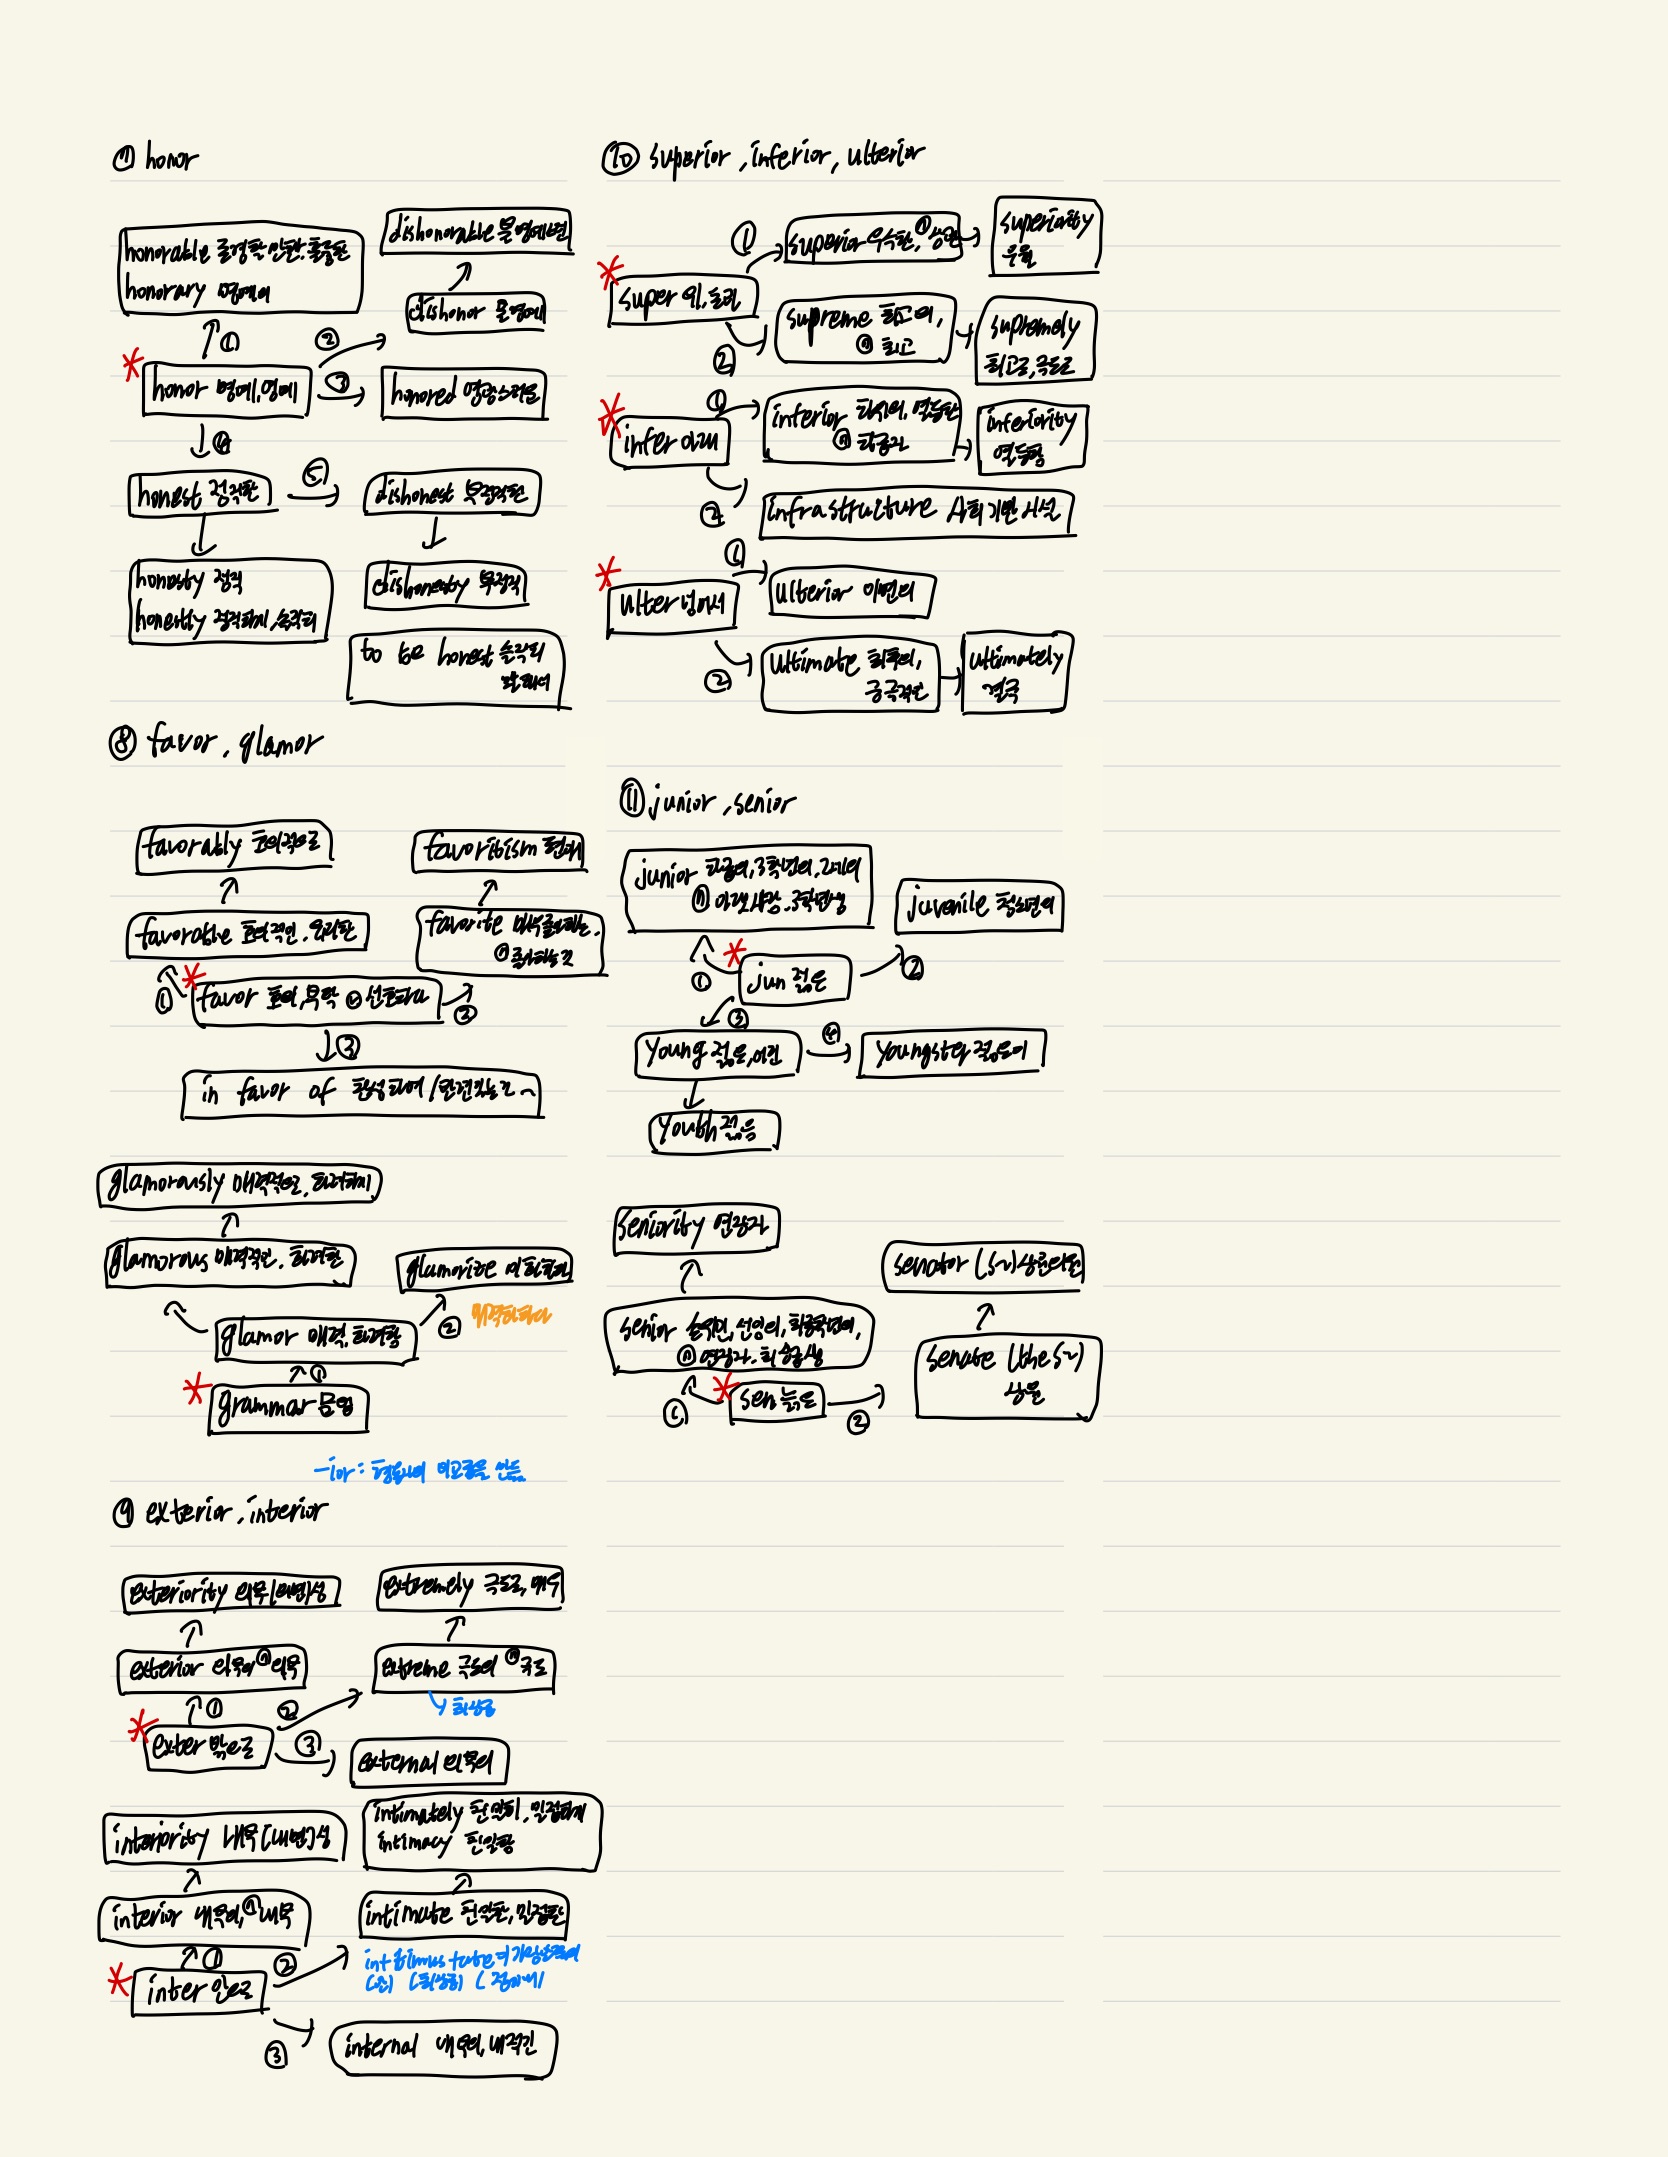 ⑦ honor
honorable 존경할 만한, 훌륭한
honorary 명예의
dishonorable 불명예스런
dishonor 불명예
①
②
③
honor 명예, 영예
honored 영광스러운
④
honest 정직한
⑤
dishonest 부정직한
honesty 정직
honestly 정직하게, 솔직히
dishonesty 부정직
to be honest 솔직히
말해서
⑧ favor, glamor
favorably 호의적으로
favoritism 편애
favorable 호의적인, 유리한
favorite 매우 좋아하는,
ⓝ 좋아하는 것
①
favor 호의, 부탁 ⓥ 선호하다
②
③
in favor of 찬성하여/
glamorously 매력적으로, 화려하게
glamorous 매력적인, 화려한
glamorize 미화하다
매력화하다
glamor 매력, 화려함
②
①
grammar 문법
-ior: 형용사의 비교급을 만듦
⑨ exterior, interior
exteriority 외부[외면]성
extremely 극도로, 매우
exterior 외부의 ⓝ 외부
extreme 극도의 ⓝ 극도
최상급
①
②
exter 밖으로
③
external 외부의
interiority 내부[내면]성
intimately 친밀히, 밀접하게
intimacy 친밀함
interior 내부의, ⓝ 내부
intimate 친밀한, 밀접한
①
②
inter 안으로
(최상급)
③
internal 내부의, 내적인
⑩ superior, inferior, ulterior
①
superior 우수한, ⓝ 상관
superiority
우월
super 위, 높은
②
supreme 최고의,
ⓝ 최고
supremely
최고로, 극도로
①
infer 아래
inferior 하위의, 열등한
ⓝ 하급자
inferiority
열등함
②
infrastructure 사회 기반 시설
①
ulter 넘어서
ulterior 이면의
②
ultimate 최후의,
궁극적인
ultimately
결국
⑪ junior, senior
junior 하급의, 3학년의, 2세의
ⓝ 아랫사람, 3학년생
juvenile 청소년의
①
jun 젊은
②
③
young 젊은, 어린
④
youngster 젊은이
youth 젊음
seniority 연장자
senator (S~) 상원의원
senior 손위의, 선임의, 최종학년의,
ⓝ 연장자, 최상급생
senate (the S~)
상원
①
sen 늙은
②